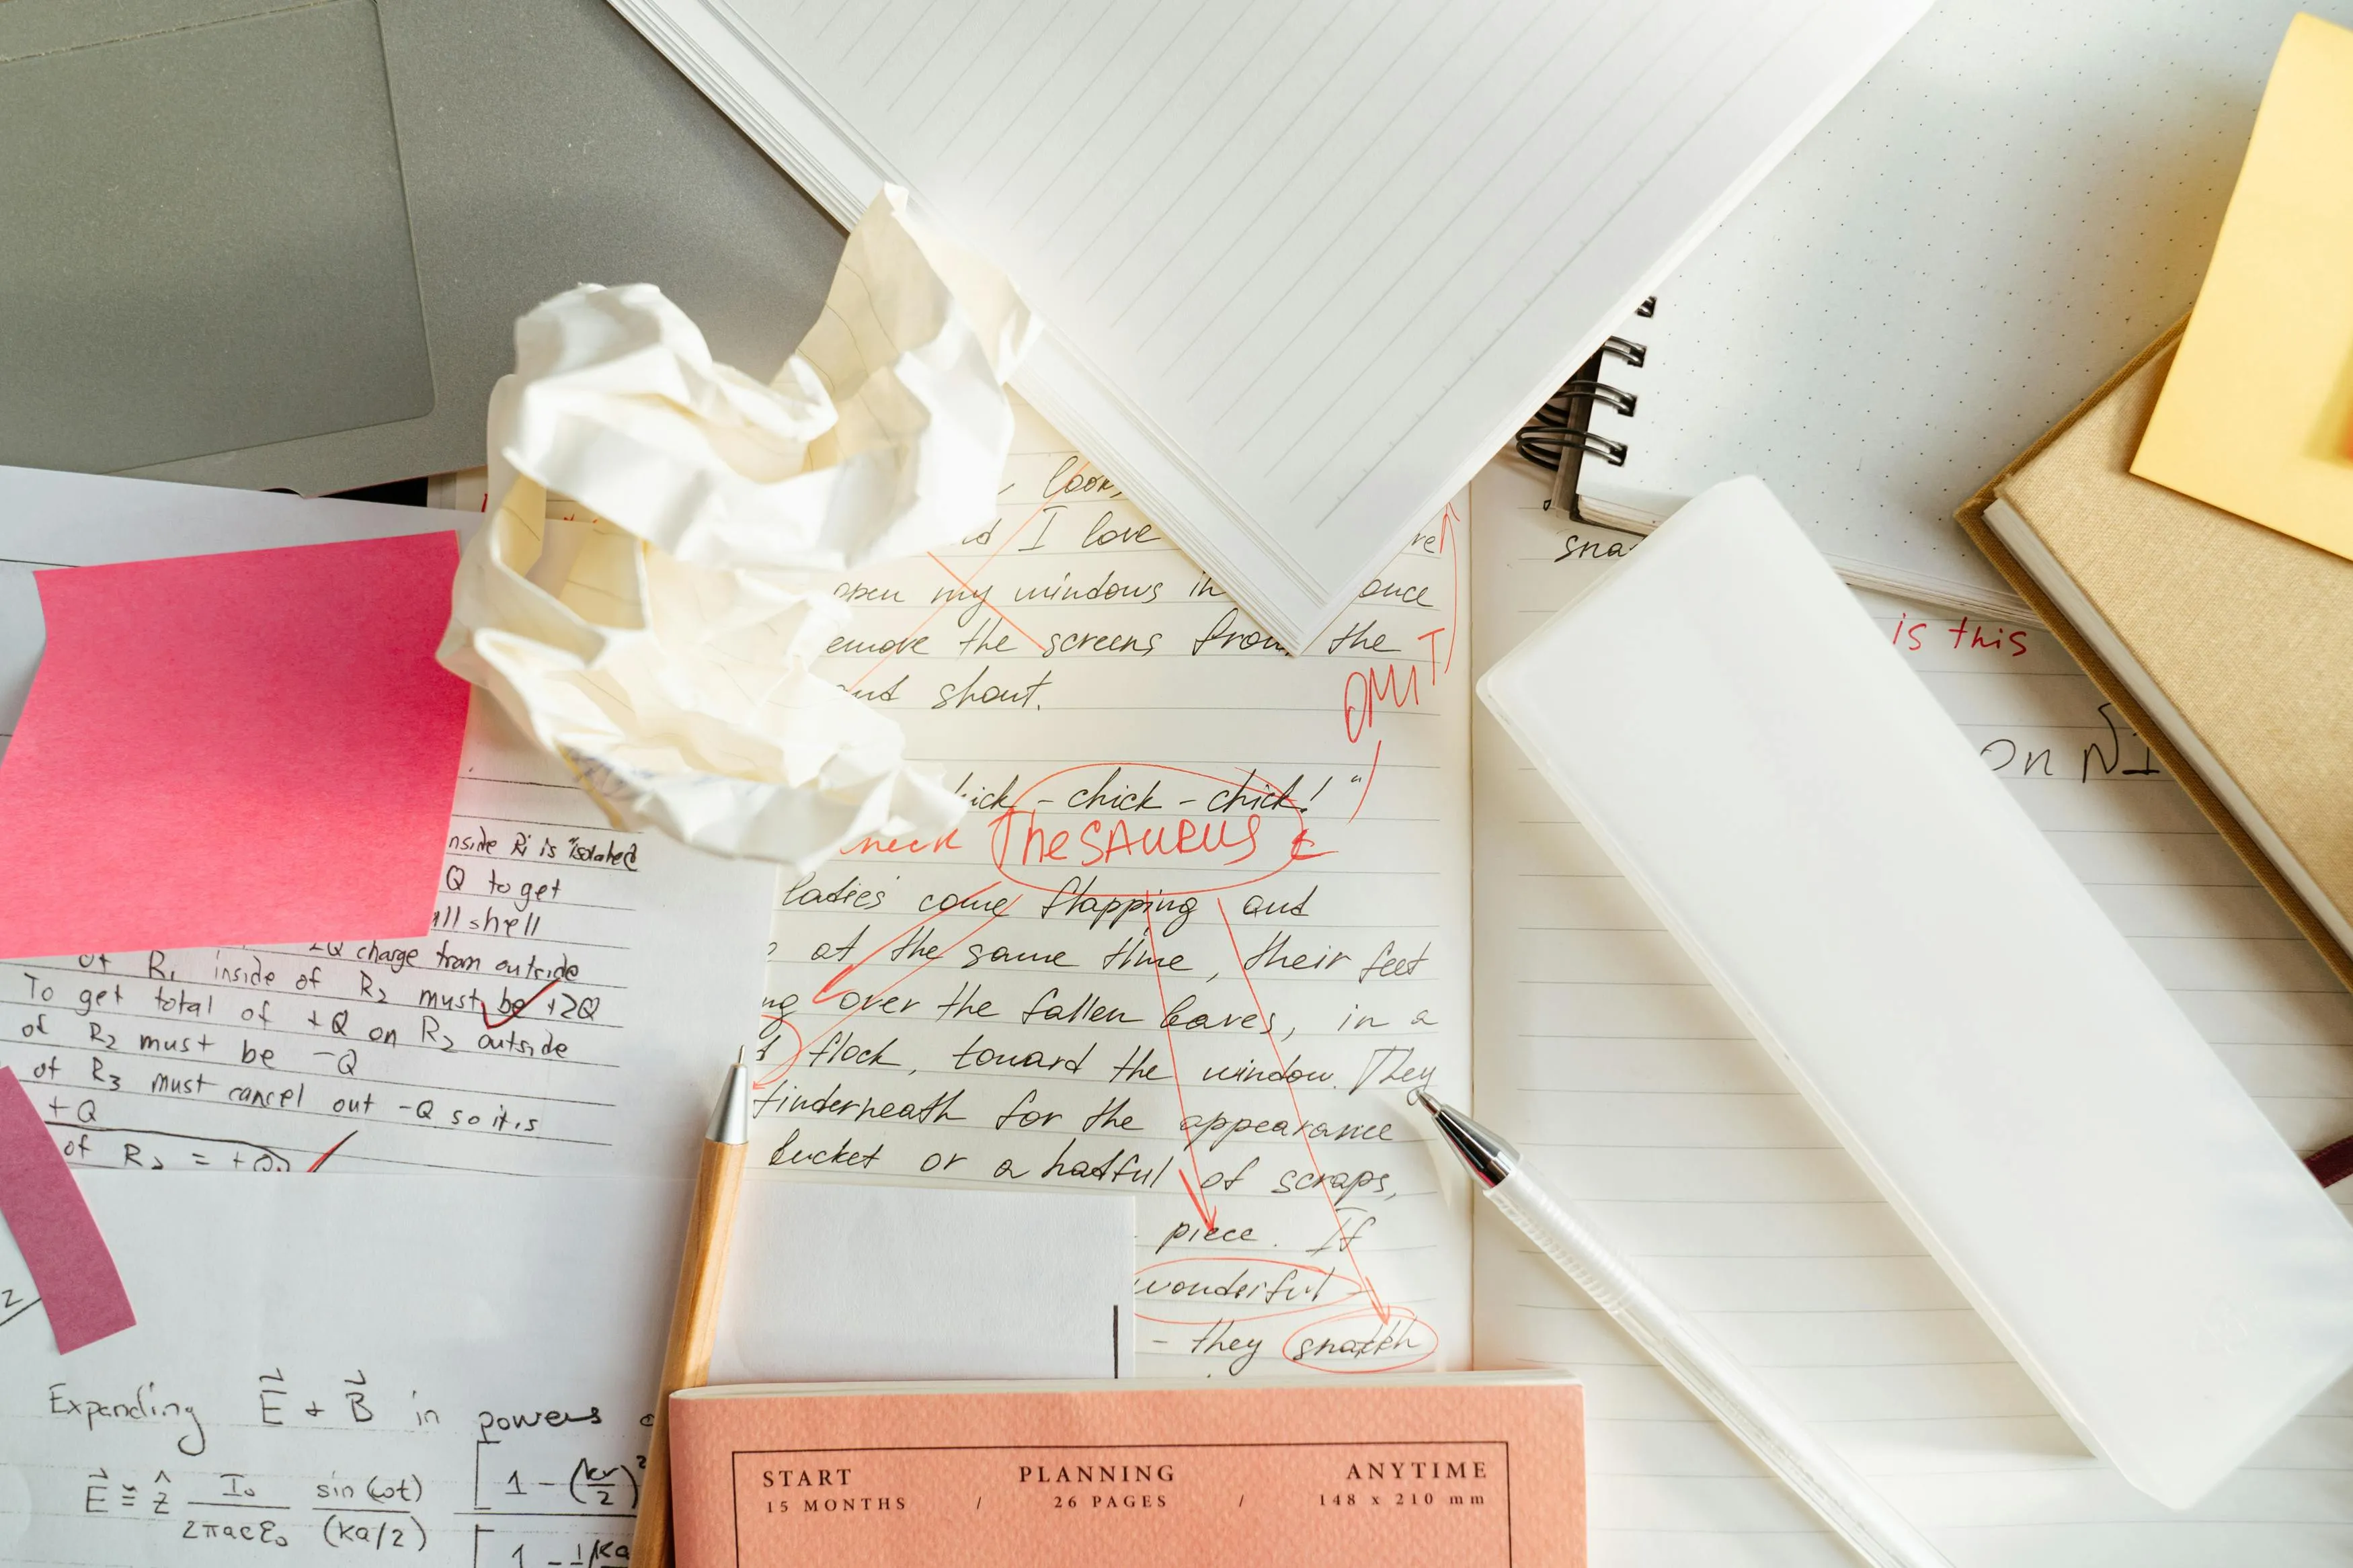 look,
I love
open my windows in
once
emove the screens from the
and shout.
OMIT
- chick - chick! "
THESAURUS
ladies come flapping and
at the same time, their feet
over the fallen leaves, in a
flock, toward the window. They
underneath for the appearance
bucket or a hatful of scraps,
piece. If
wonderful
- they snatch
sna
is this
on
nside Ri is "isolated
Q to get
all shell
2Q charge from outside
of R1 inside of R2 must be +2Q
To get total of +Q on R2 outside
of R2 must be -Q
of R3 must cancel out -Q so it is
+Q
of R2 = +Q
2
Expanding E + B in powers
E ≅ ẑ I0 / 2πacε0 sin(ωt) / (ka/2) [1 - (kr/2)²
[1 -
START PLANNING ANYTIME
15 MONTHS / 26 PAGES / 148 x 210 mm